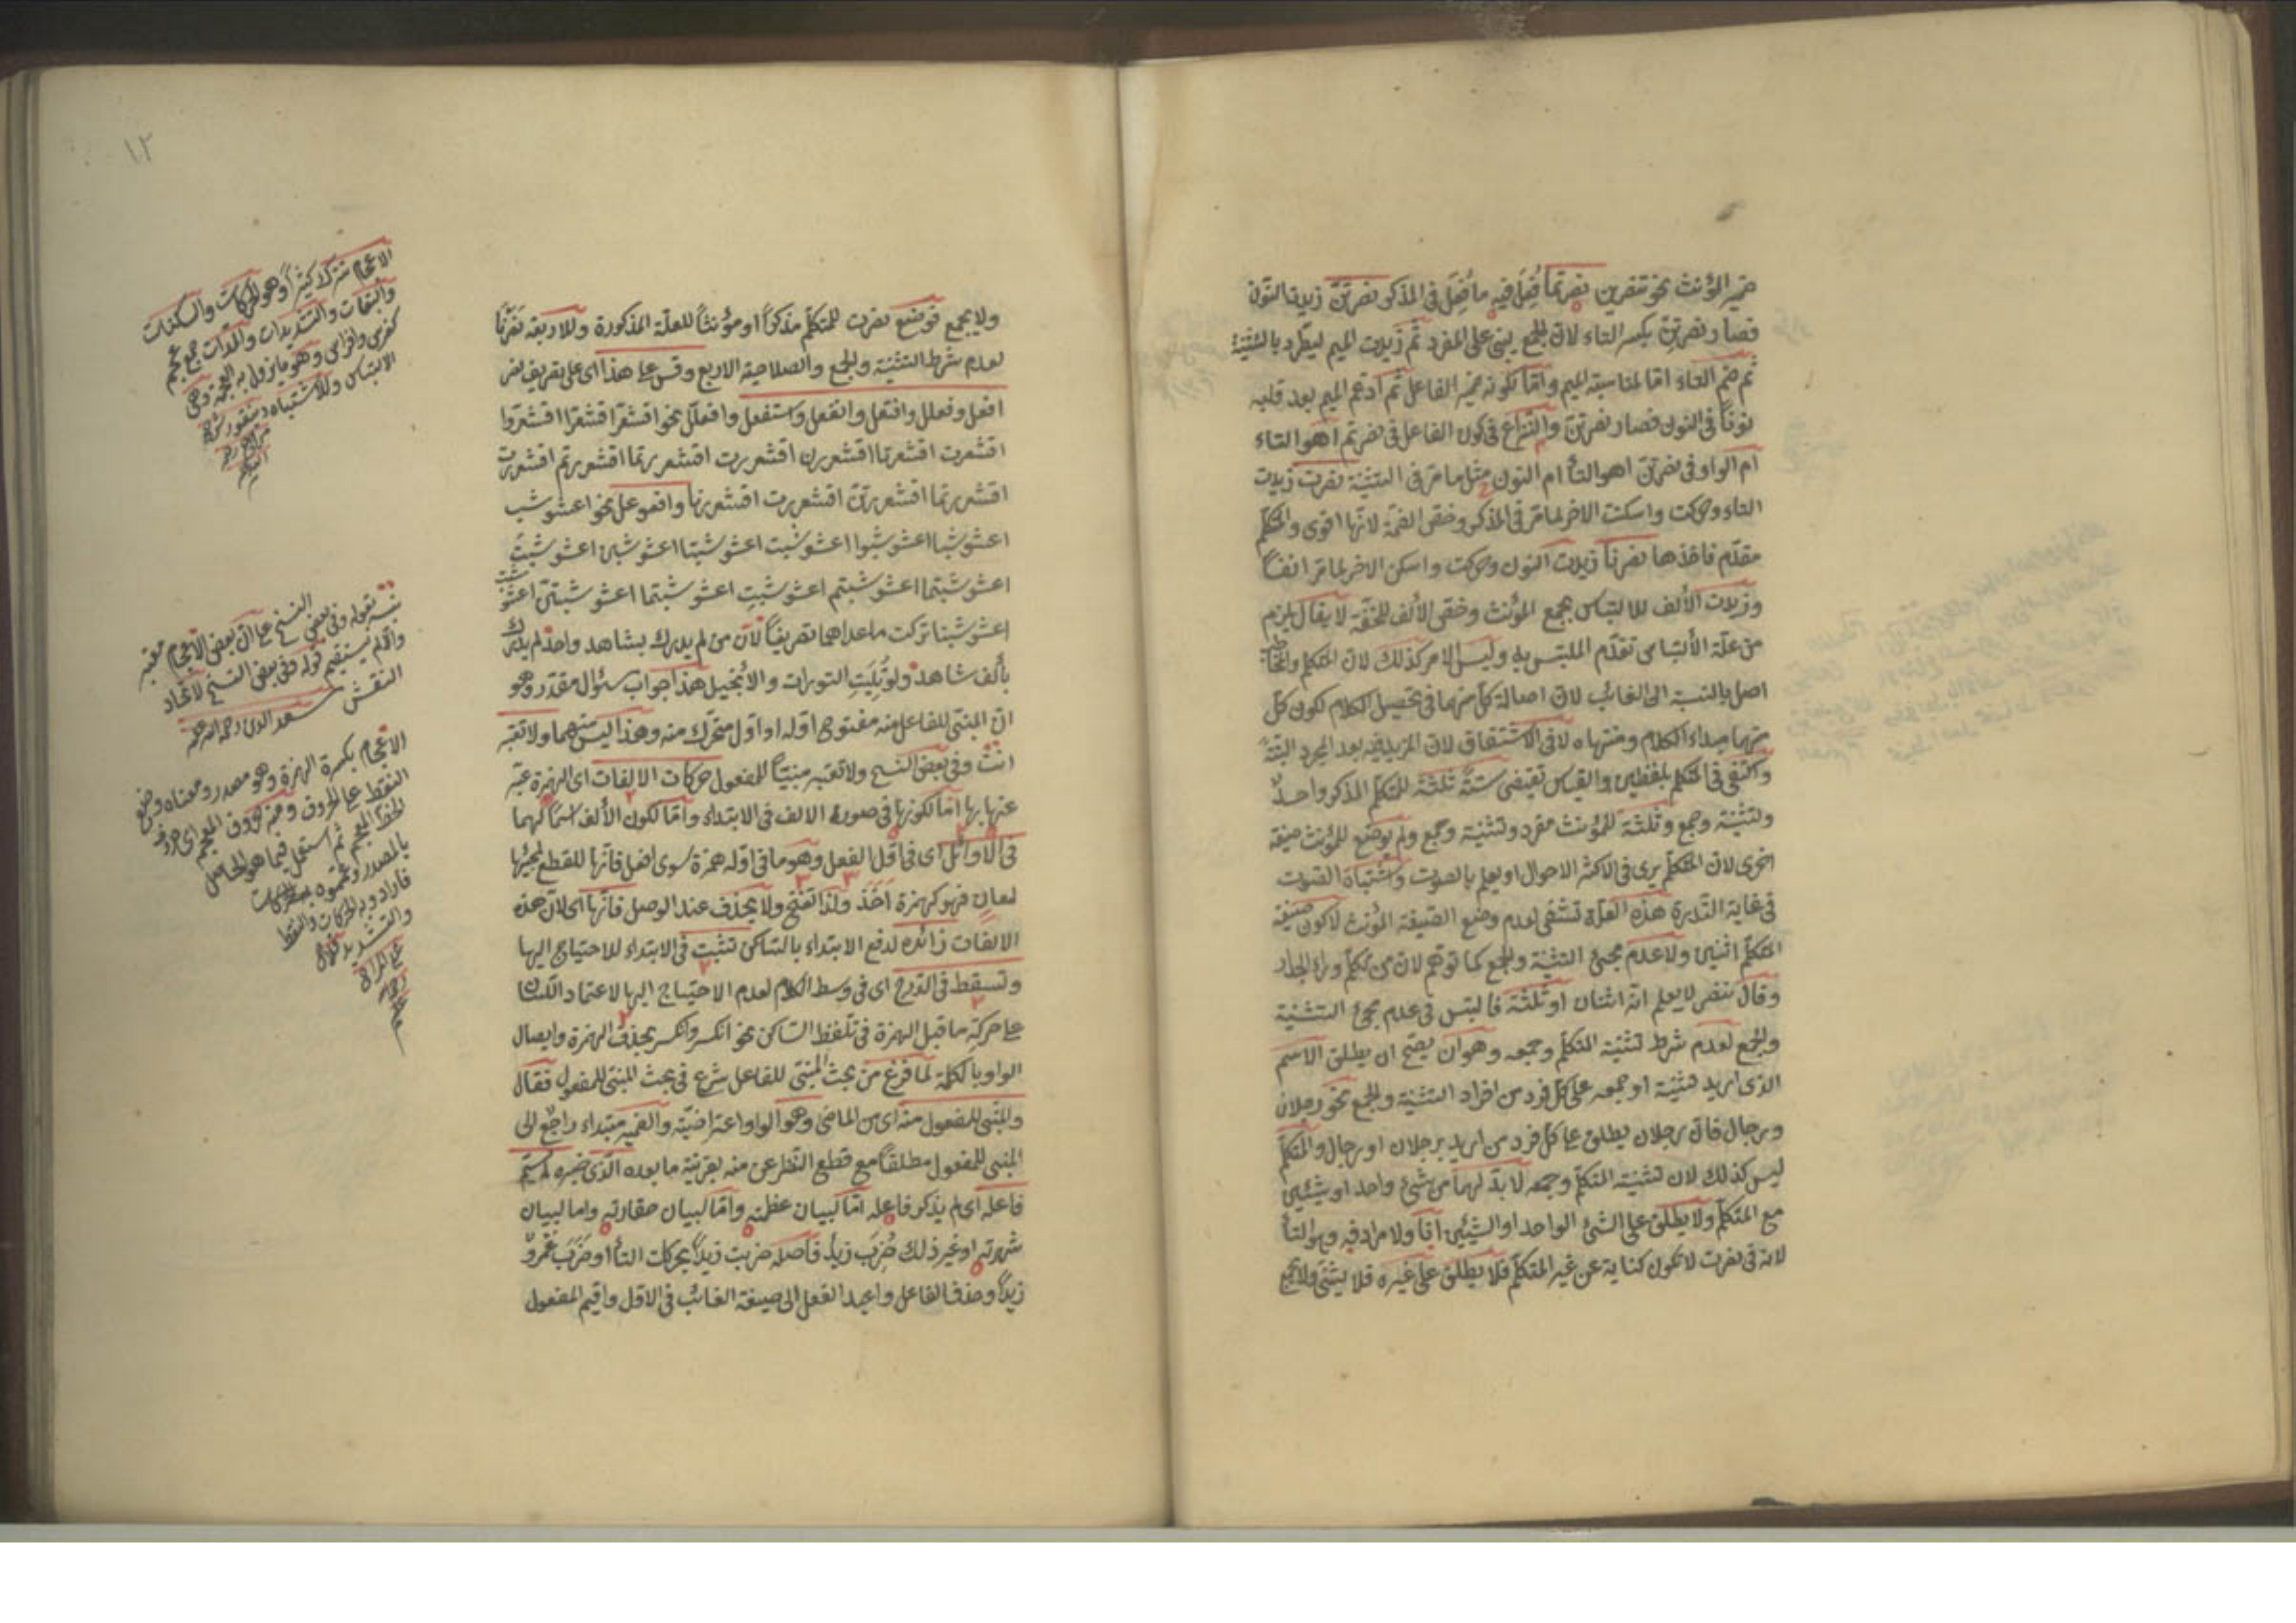 ضمير المؤنث نحو تنصرين نصرتما فُعِل فيه ما فُعِل في المذكر نصرتن زيدت النون
فصار نصرتن بكسر التاء لان الجمع يبنى على المفرد ثم زيدت الميم ليطرد بالتثنية
ثم ضم التاء اما لمناسبة الميم واما لكونه ضمير الفاعل ثم ادغم الميم بعد قلبه
نوناً في النون فصار نصرتن والنزاع في كون الفاعل في نصرتم اهو التاء
ام الواو وفي نصرتن اهو التاء ام النون مثل ما مر في التثنية نصرت زيدت
التاء وحركت واسكنت الاخر لما مر في المذكر وخص الضمة لانها اقوى والمتكلم
مقدم فاخذها نصرنا زيدت النون وحركت واسكن الاخر لما مر انفاً
وزيدت الألف للالتباس بجمع المؤنث وخص الألف للخفة لا يقال يلزم
من علة الألتباس تقدم الملتبس به وليس الامر كذلك لان المتكلم والمخاطب
اصل بالنسبة الى الغائب لان اصالة كل منهما في تحصيل الكلام لكون كل
منهما مبداء الكلام ومنتهاه لا في الاشتقاق لان المزيد فيه بعد المجرد البتة
واكتفى في المتكلم بلفظين والقياس تقيضى ستة ثلثة للمتكلم المذكر واحد
وتثنية وجمع وثلثة للمؤنث مفرد وتثنية وجمع ولم يوضع للمؤنث صيغة
اخرى لان المتكلم يرى في الاكثر الاحوال او يعلم بالصوت واشتباه الصوت
في غاية الندرة هذه العلة تشفى لعدم وضع الصيغة المؤنث لا كون صيغة
المتكلم اثنين ولا عدم مجئ التثنية والجمع كما توهم لان من تكلم وراء الجدار
وقال ننصر لا يعلم انه اثنان او ثلثة فالتبس في عدم مجئ التثنية
والجمع لعدم شرط تثنية المتكلم وجمعه وهو ان يصح ان يطلق الاسم
الذى اريد تثنية او جمعه على كل فرد من افراد التثنية والجمع نحو رجلان
ورجال فان رجلان يطلق على كل فرد من اريد برجلان او رجال والمتكلم
ليس كذلك لان تثنية المتكلم وجمعه لا بد لهما من شئ واحد او شيئين
مع المتكلم ولا يطلق على الشئ الواحد او الشيئين انا ولا مرادفه وهو التاء
لانه في نصرت لا تكون كناية عن غير المتكلم فلا يطلق على غيره فلا يثنى ولا يجمع
١٢
ولا يجمع فوضع نصرت للمتكلم مذكراً او مؤنثاً للعلة المذكورة ولا اربعة نصرنا
لعدم شرط التثنية والجمع والصلاحية الاربع وقس على هذا اى على تصريف نصر
افعل وفعلل وافتعل وانفعل واستفعل وافعلل نحو اقشعر اقشعرا اقشعروا
اقشعرت اقشعرتا اقشعررن اقشعررت اقشعررتما اقشعررتم اقشعررت
اقشعررتما اقشعررتن اقشعررت اقشعررنا وافعوعل نحو اعشوشب
اعشوشبا اعشوشبوا اعشوشبت اعشوشبتا اعشوشبن اعشوشبتَ
اعشوشبتما اعشوشبتم اعشوشبتِ اعشوشبتما اعشوشبتن اعشوشبت
اعشوشبنا تركت ما عداهما تصريفاً لان من لم يدرك بشاهد واحد لم يدرك
بألف شاهد ولو تُلِيَتِ التورات والأنجيل هذا جواب سئوال مقدر وهو
ان المبنى للفاعل منه مفتوح اوله او اول متحرك منه وهذا ليس منهما ولا تعتبر
انت وفي بعض النسخ ولا تعتبر مبنيّاً للمفعول حركات الالفات اى الهمزة عبّر
عنها بها اما لكونها في صورة الالف في الابتداء واما لكون الألف اسماً لهما
في الاوائل اى في اول الفعل وهو ما في اوله همزة سوى افعل فانها للقطع لمجيئها
لمعانٍ فهو كهمزة اخذ ولذا تفتح ولا يحذف عند الوصل فانها اى لان هذه
الالفات زائدة لدفع الابتداء بالساكن تثبت في الابتداء للاحتياج اليها
وتسقط في الدرج اى في وسط الكلام لعدم الاحتياج اليها لاعتماد اللسان
على حركة ما قبل الهمزة في تلفظ الساكن نحو انكسر وانكسر بحذف الهمزة وايصال
الواو بالكلمة لما فرغ من بحث المبنى للفاعل شرع في بحث المبنى للمفعول فقال
والمبنى للمفعول منه اى من الماضى وهو الواو اعتراضية والضمير مبتداء راجع الى
المبنى للمفعول مطلقاً مع قطع النظر عن منه بقرينة ما بعده الذى خبره لم يسم
فاعله اى لم يذكر فاعله اما لبيان عظمته واما لبيان حقارته واما لبيان
شهرته او غير ذلك ضُرِبَ زيد فاصله ضربت زيداً بحركات التاء او ضَرَبَ عمرو
زيداً وحذف الفاعل واعيد الفعل الى صيغة الغائب في الاول واقيم المفعول
الاعجام تترك كثيراً وهو الحركات والسكنات
والنقطات والتشديدات والمدات جمع عجم
كفرس وافراس وهو ما يزول به العجمة وهى
الالتباس والاشتباه
نبه بقوله وفي بعض النسخ على ان بعض الاعجام تعتبر
والا لم يستقيم قوله وفي بعض النسخ لاتحاد
النقش سعد الدين رحمة الله عليه
الاعجام بكسرة الهمزة وهو مصدر ومعناه وضع
النقط على الحروف ومنه حروف المعجم اى حروف
الخط المعجم ثم استعمل فيما هو الحاصل
بالمصدر
فاراد به الحركات والنقط
والتشديد